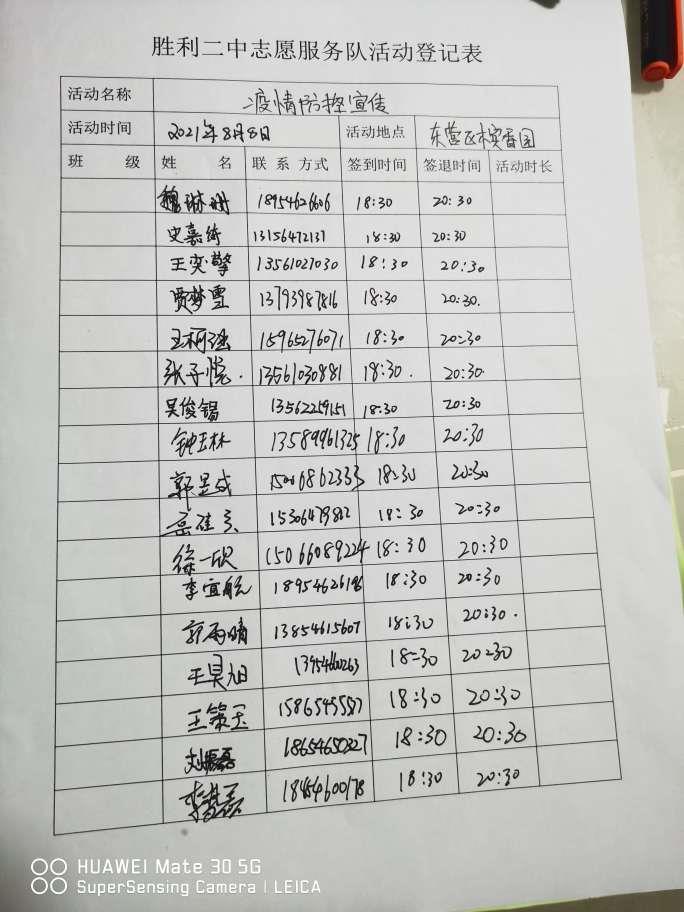 胜利二中志愿服务队活动登记表
活动名称 疫情防控宣传
活动时间 2021年8月8日 活动地点 东营区槟香园
班 级 姓 名 联 系 方式 签到时间 签退时间 活动时长
魏琳珊 18954626606 18:30 20:30
史嘉绮 13156472137 18:30 20:30
王奕擎 13561027030 18:30 20:30
贾梦雪 13793987816 18:30 20:30.
王柯强 15965276071 18:30 20:30
张子悦. 13561030881 18:30. 20:30.
吴俊锡 13562259151 18:30 20:30
钟玉林 13589961325 18:30 20:30
郭昱成 15006862333 18:30 20:30
岳 15306479812 18:30 20:30
徐一欣 15066089224 18:30 20:30
李宜航 18954626196 18:30 20:30
郭雨晴 13854615607 18:30 20:30.
王昊旭 13954660263 18:30 20:30
王策玉 15865455517 18:30 20:30
刘 18654650227 18:30 20:30
李 18454600178 18:30 20:30
HUAWEI Mate 30 5G
SuperSensing Camera | LEICA